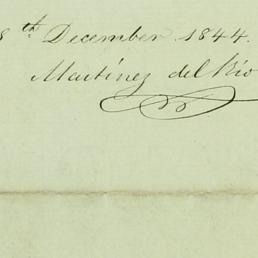 8th December 1844.
Martínez del Río